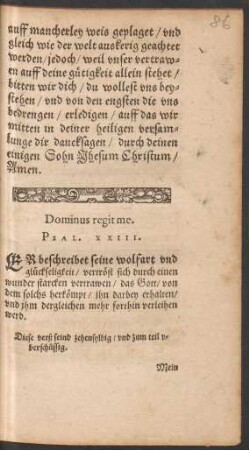 86
auff mancherley weis geplaget / vnd
gleich wie der welt auskerig geachtet
werden / jedoch / weil vnser vertraw-
en auff deine gütigkeit allein stehet /
bitten wir dich / du wollest vns bey-
stehen / vnd von den engsten die vns
bedrengen / erledigen / auff das wir
mitten in deiner heiligen versam-
lunge dir dancksagen / durch deinen
einigen Sohn Jhesum Christum /
Amen.
Dominus regit me.
PSAL. XXIII.
ER beschreibet seine wolfart vnd
glückseligkeit / vertröst sich durch einen
wunder starcken vertrawen / das Gott / von
dem solchs herkömpt / jhn darbey erhalten /
vnd jhm dergleichen mehr forthin verleihen
werd.
Diese verß seind zehensylbig / vnd zum teil v-
berschüssig.
Mein